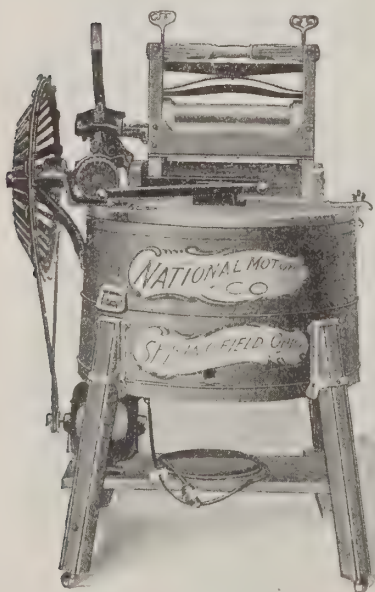 NATIONAL MOTOR
CO
SPRINGFIELD OHIO